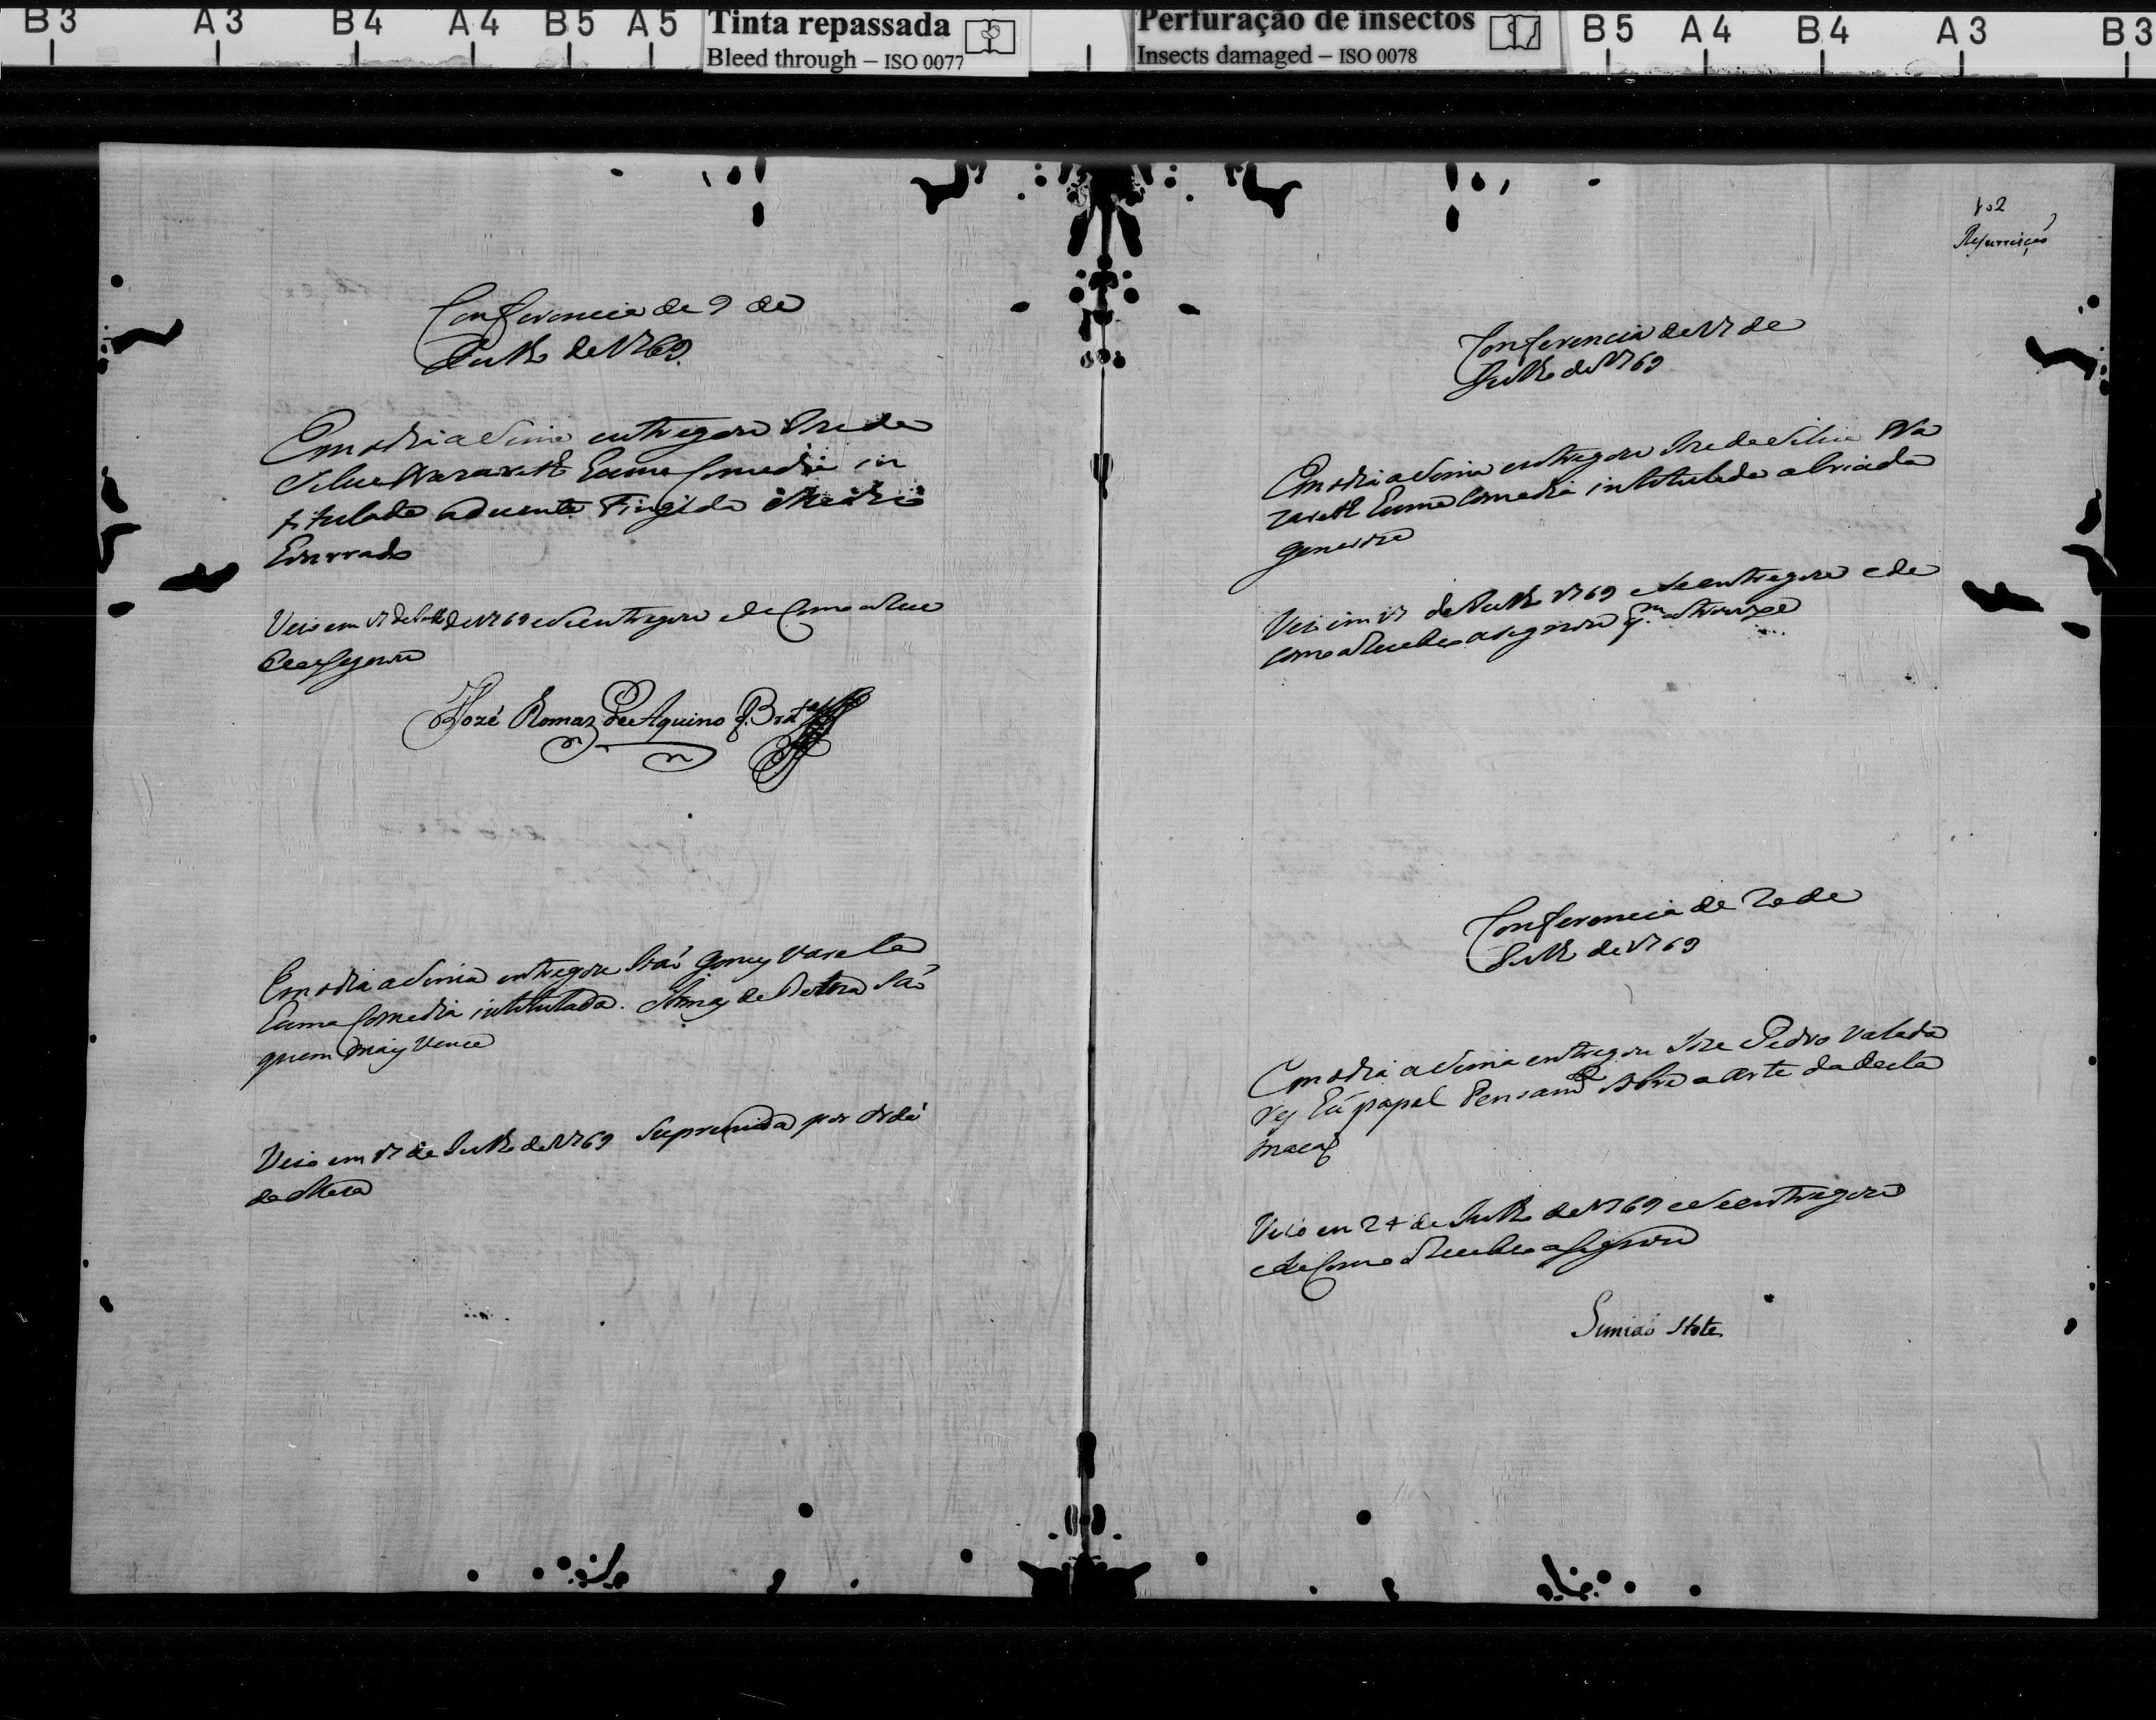 B3 A3 B4 A4 B5 A5
Tinta repassada
Bleed through – ISO 0077
Perfuração de insectos
Insects damaged – ISO 0078
B5 A4 B4 A3 B3
Conferencia de 9 de
Julho de 1769
Em o dia asima entregou Jze da
Silva Nazareth huma Comedia in
titulada a duente Fingida e Medico
honrrado
Veio em 17 de Julho de 1769 e se entregou e de Como a Rece
beo asignou
Jozé Romaz de Aquino
Em o dia asima entregou Gomes Varela
huma Comedia intitulada. Armas de
quem mais vence
Veio em 17 de Julho de 1769 Suprimida por Ordē
da Mesa
102
Conferencia de 17 de
Julho de 1769
Em o dia asima entregou Jze da Silva Na
zareth huma Comedia intitulada a Criada
generoza
Veio em 17 de Julho 1769 e se entregou e de
como a Recebeo asignou
Conferencia de 20 de
Julho de 1769
Em o dia asima entregou Jze Pedro Valada
res hū papel Pensamtos sobre a Arte da decla
maçaõ
Veio em 24 de Julho de 1769 e se entregou
e de Como o Recebeo asignou